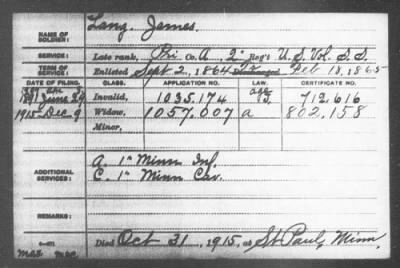 NAME OF SOLDIER: Lang, James.
SERVICE: Late rank, Pri Co. A, 2" Reg't U.S. Vol. S.S.
TERM OF SERVICE: Enlisted Sept 2, 1864 Discharged Feb 18, 1865
DATE OF FILING. CLASS. APPLICATION NO. LAW. CERTIFICATE NO.
1891 June 29 Invalid, 1035.174 712,616
1915-Dec. 9 Widow, 1057.007 a 802,158
Minor,
ADDITIONAL SERVICES: A. 1" Minn Inf.
C. 1" Minn Cav.
REMARKS:
Died Oct 31, 1915, at St Paul, Minn.